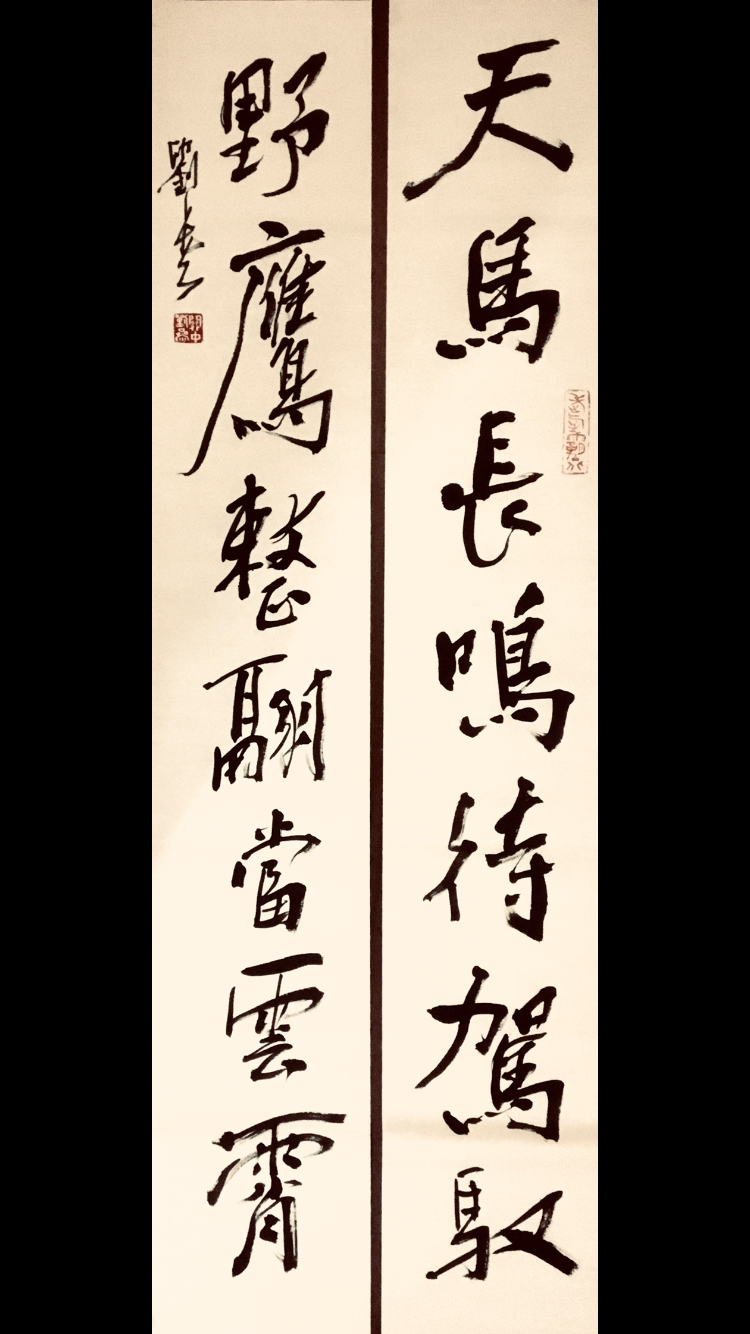 天馬長鳴待駕馭
野鷹整翮當雲霄
劉